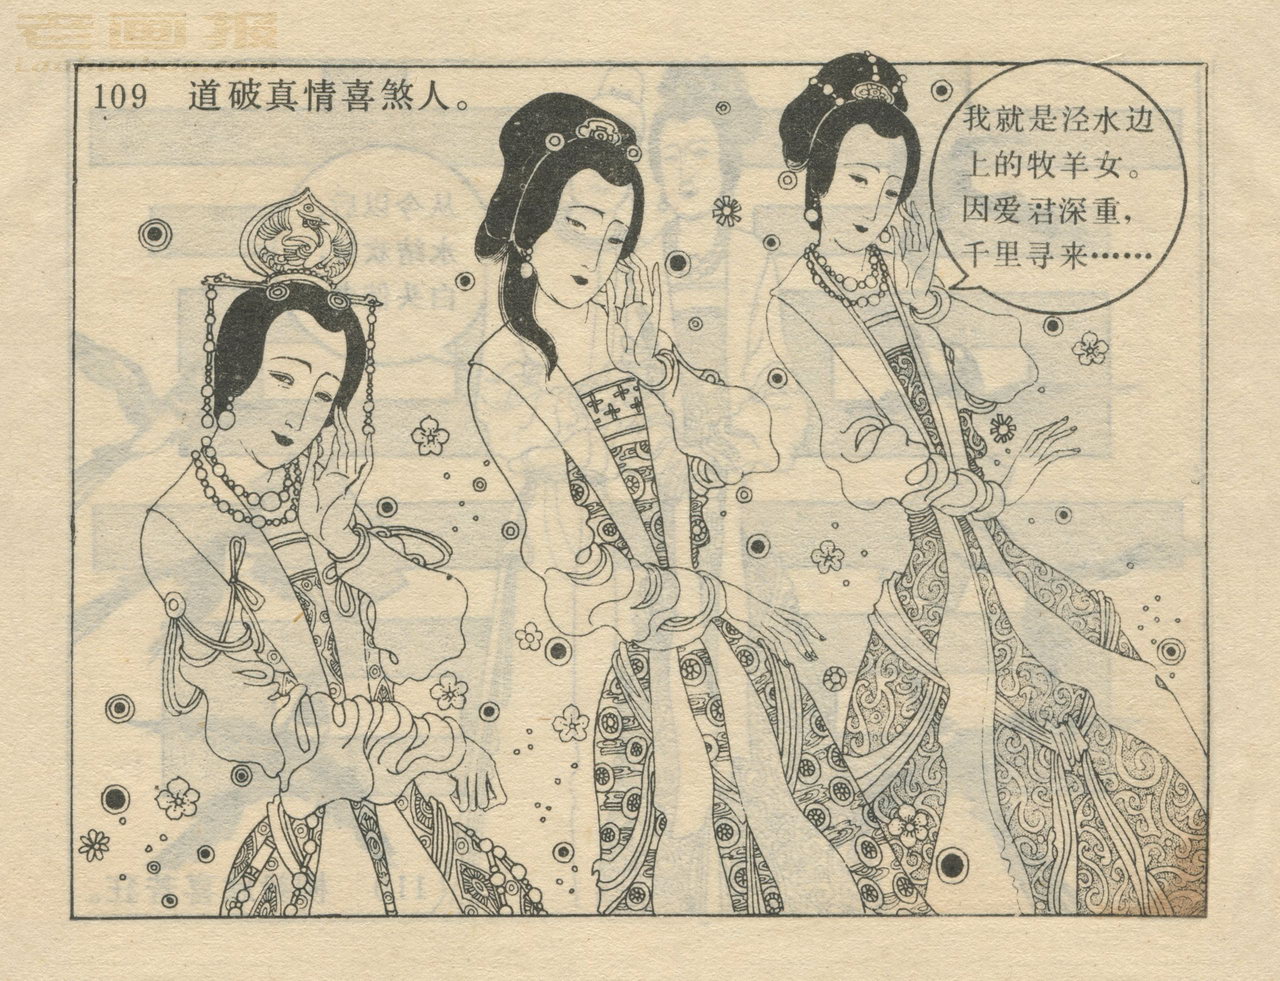 老画报
109 道破真情喜煞人。
我就是泾水边
上的牧羊女。
因爱君深重,
千里寻来……